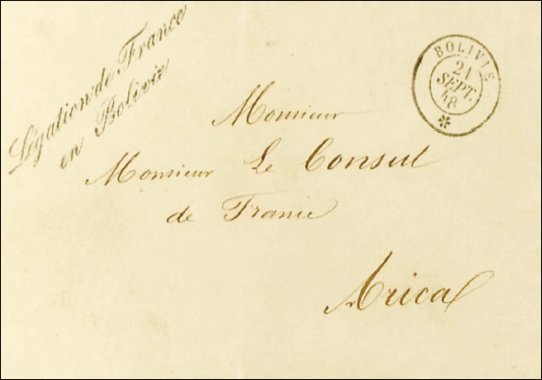 Légation de France
en Bolivie
BOLIVIE
21
SEPT.
48
Monsieur
Monsieur Le Consul
de France
Arica